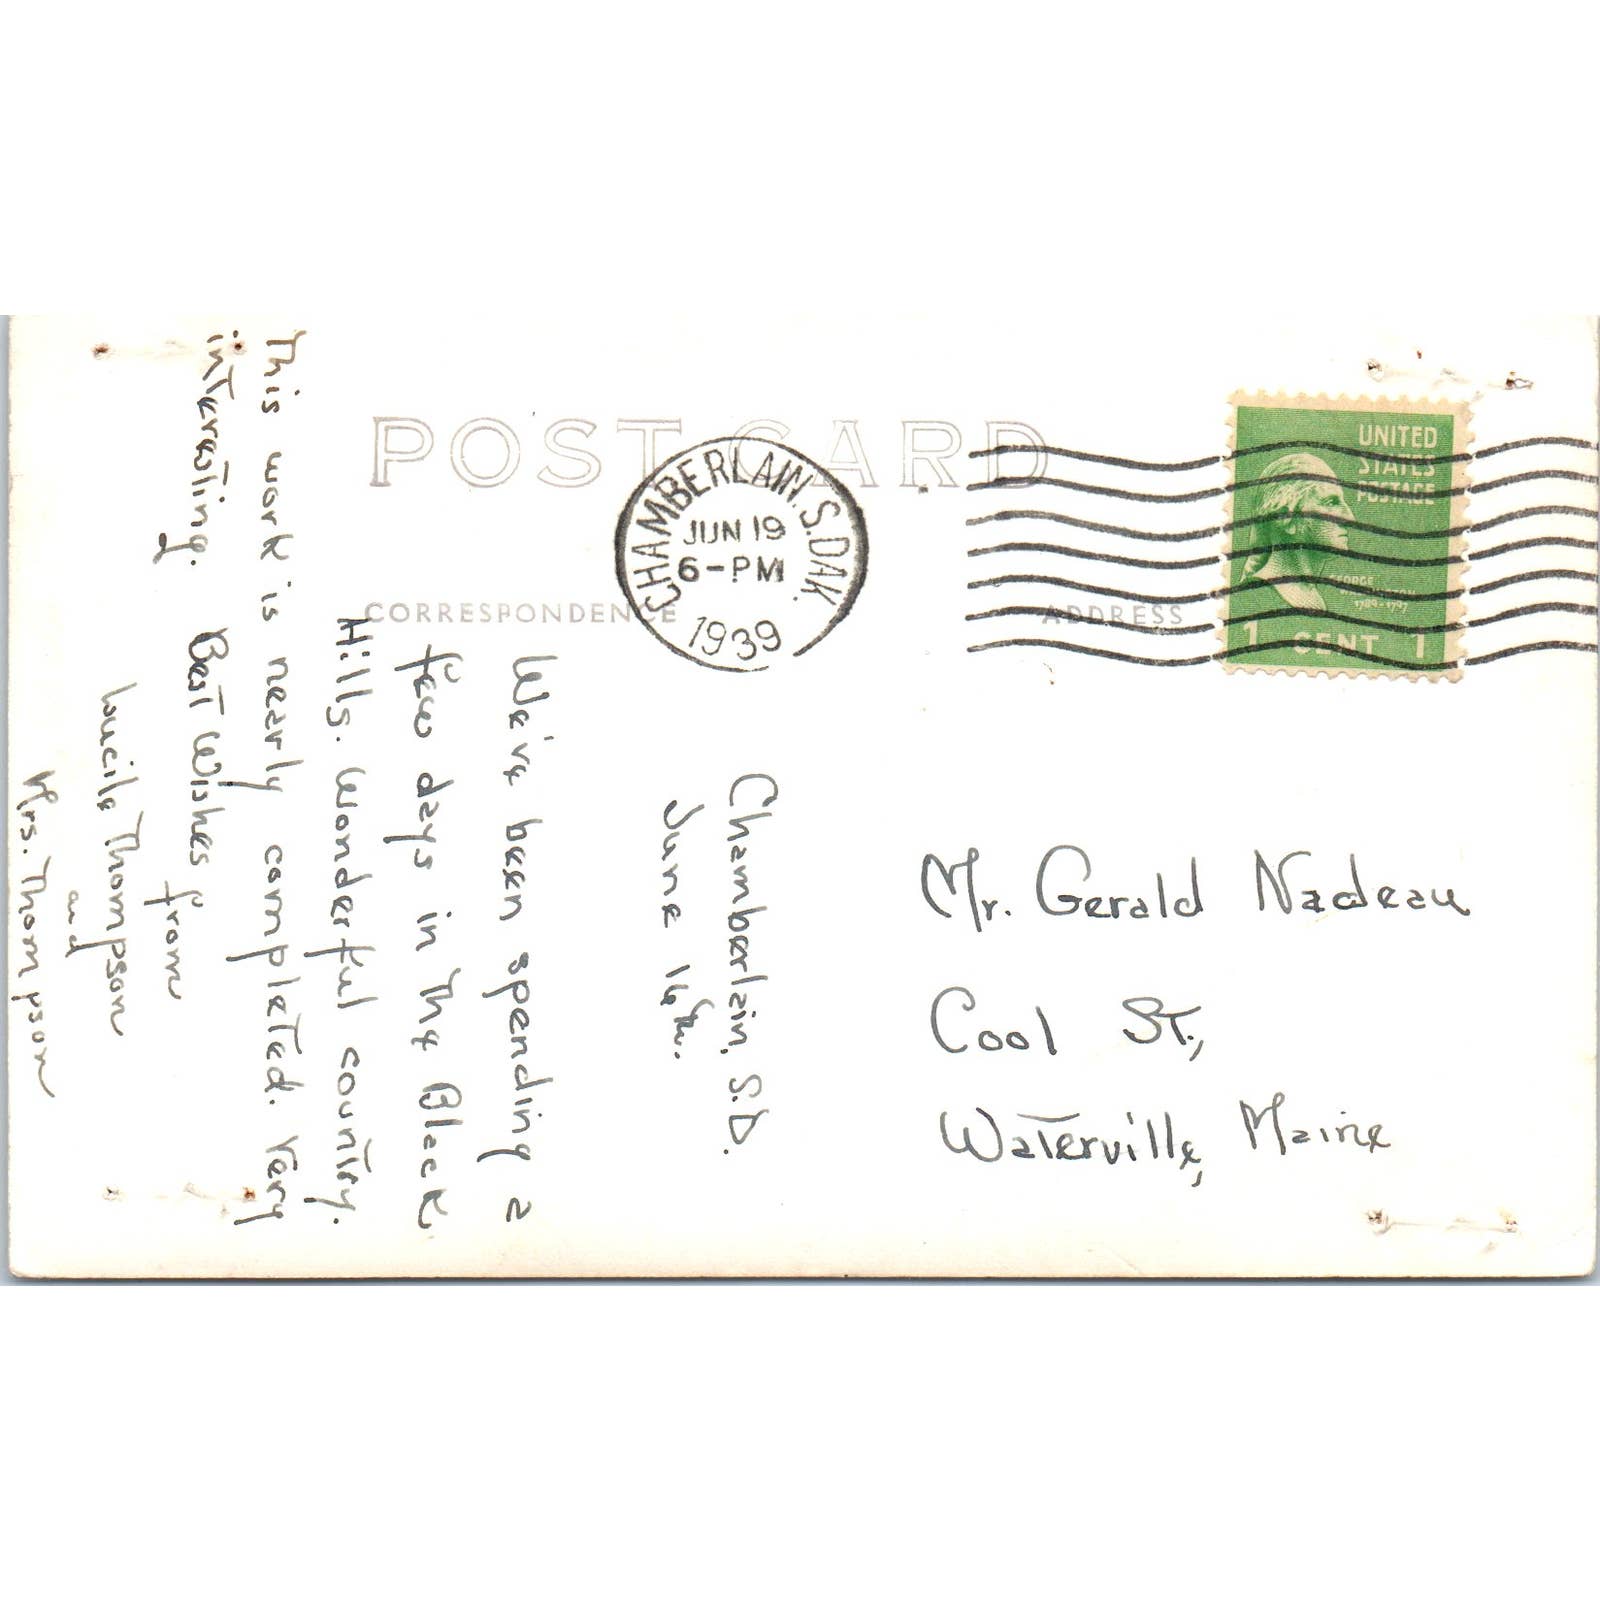 POST CARD
CHAMBERLAIN. S. DAK.
JUN 19
6-PM
1939
UNITED
STATES
POSTAGE
GEORGE
WASHINGTON
1789-1797
1 CENT 1
CORRESPONDENCE
ADDRESS
Chamberlain, S.D.
June 16
We've been spending a
few days in the Black
Hills. Wonderful country.
This work is nearly completed. Very
interesting.
Best Wishes from
Lucile Thompson
and
Mrs. Thompson
Mr. Gerald Nadeau
Cool St.,
Waterville, Maine